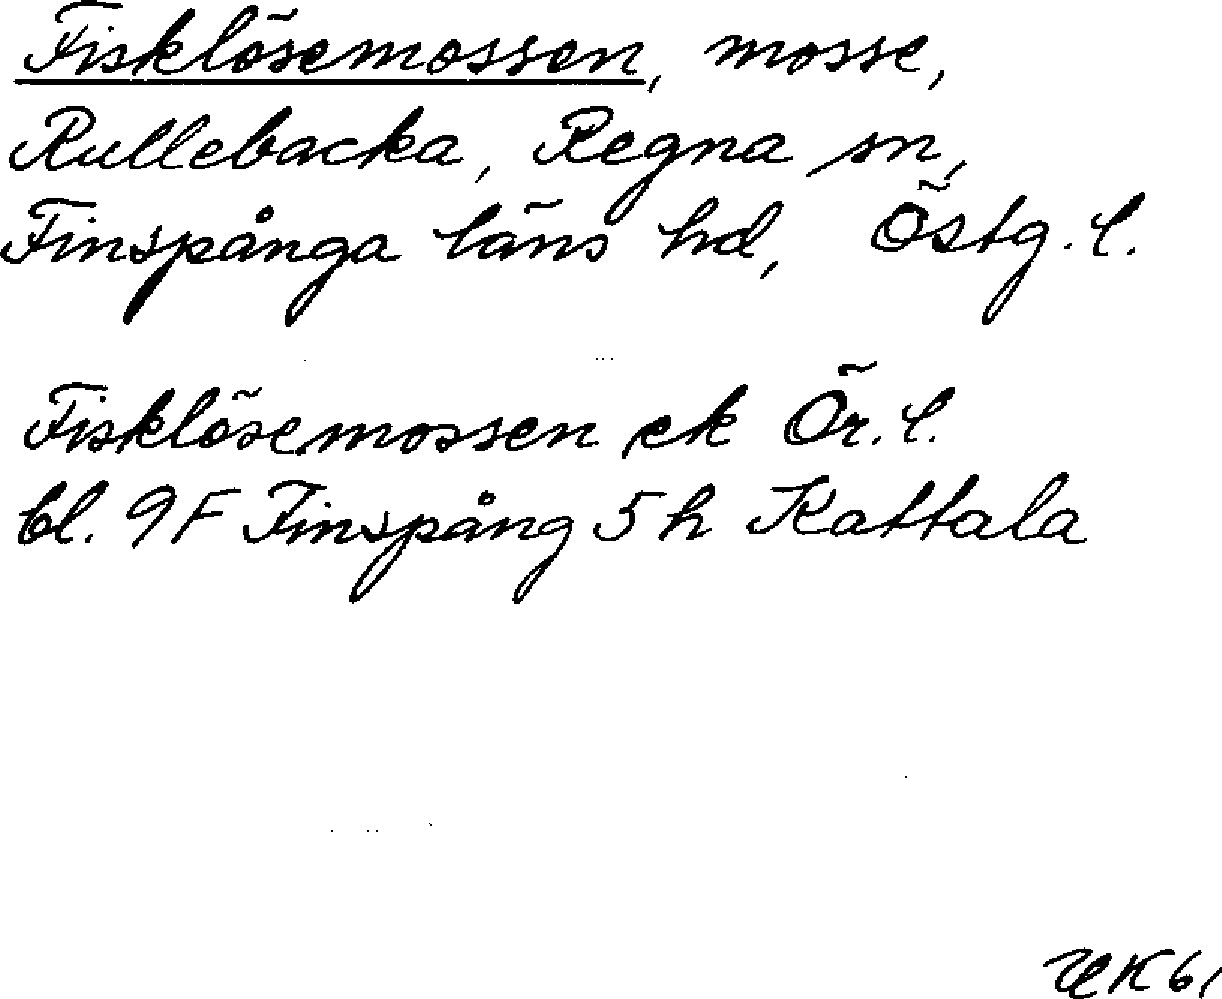 Fisklösemossen, mosse,
Rullebacka, Regna sn,
Finspånga läns hd, Östg. l.
Fisklösemossen ek Ör. l.
bl. 9F Finspång 5h Kattala